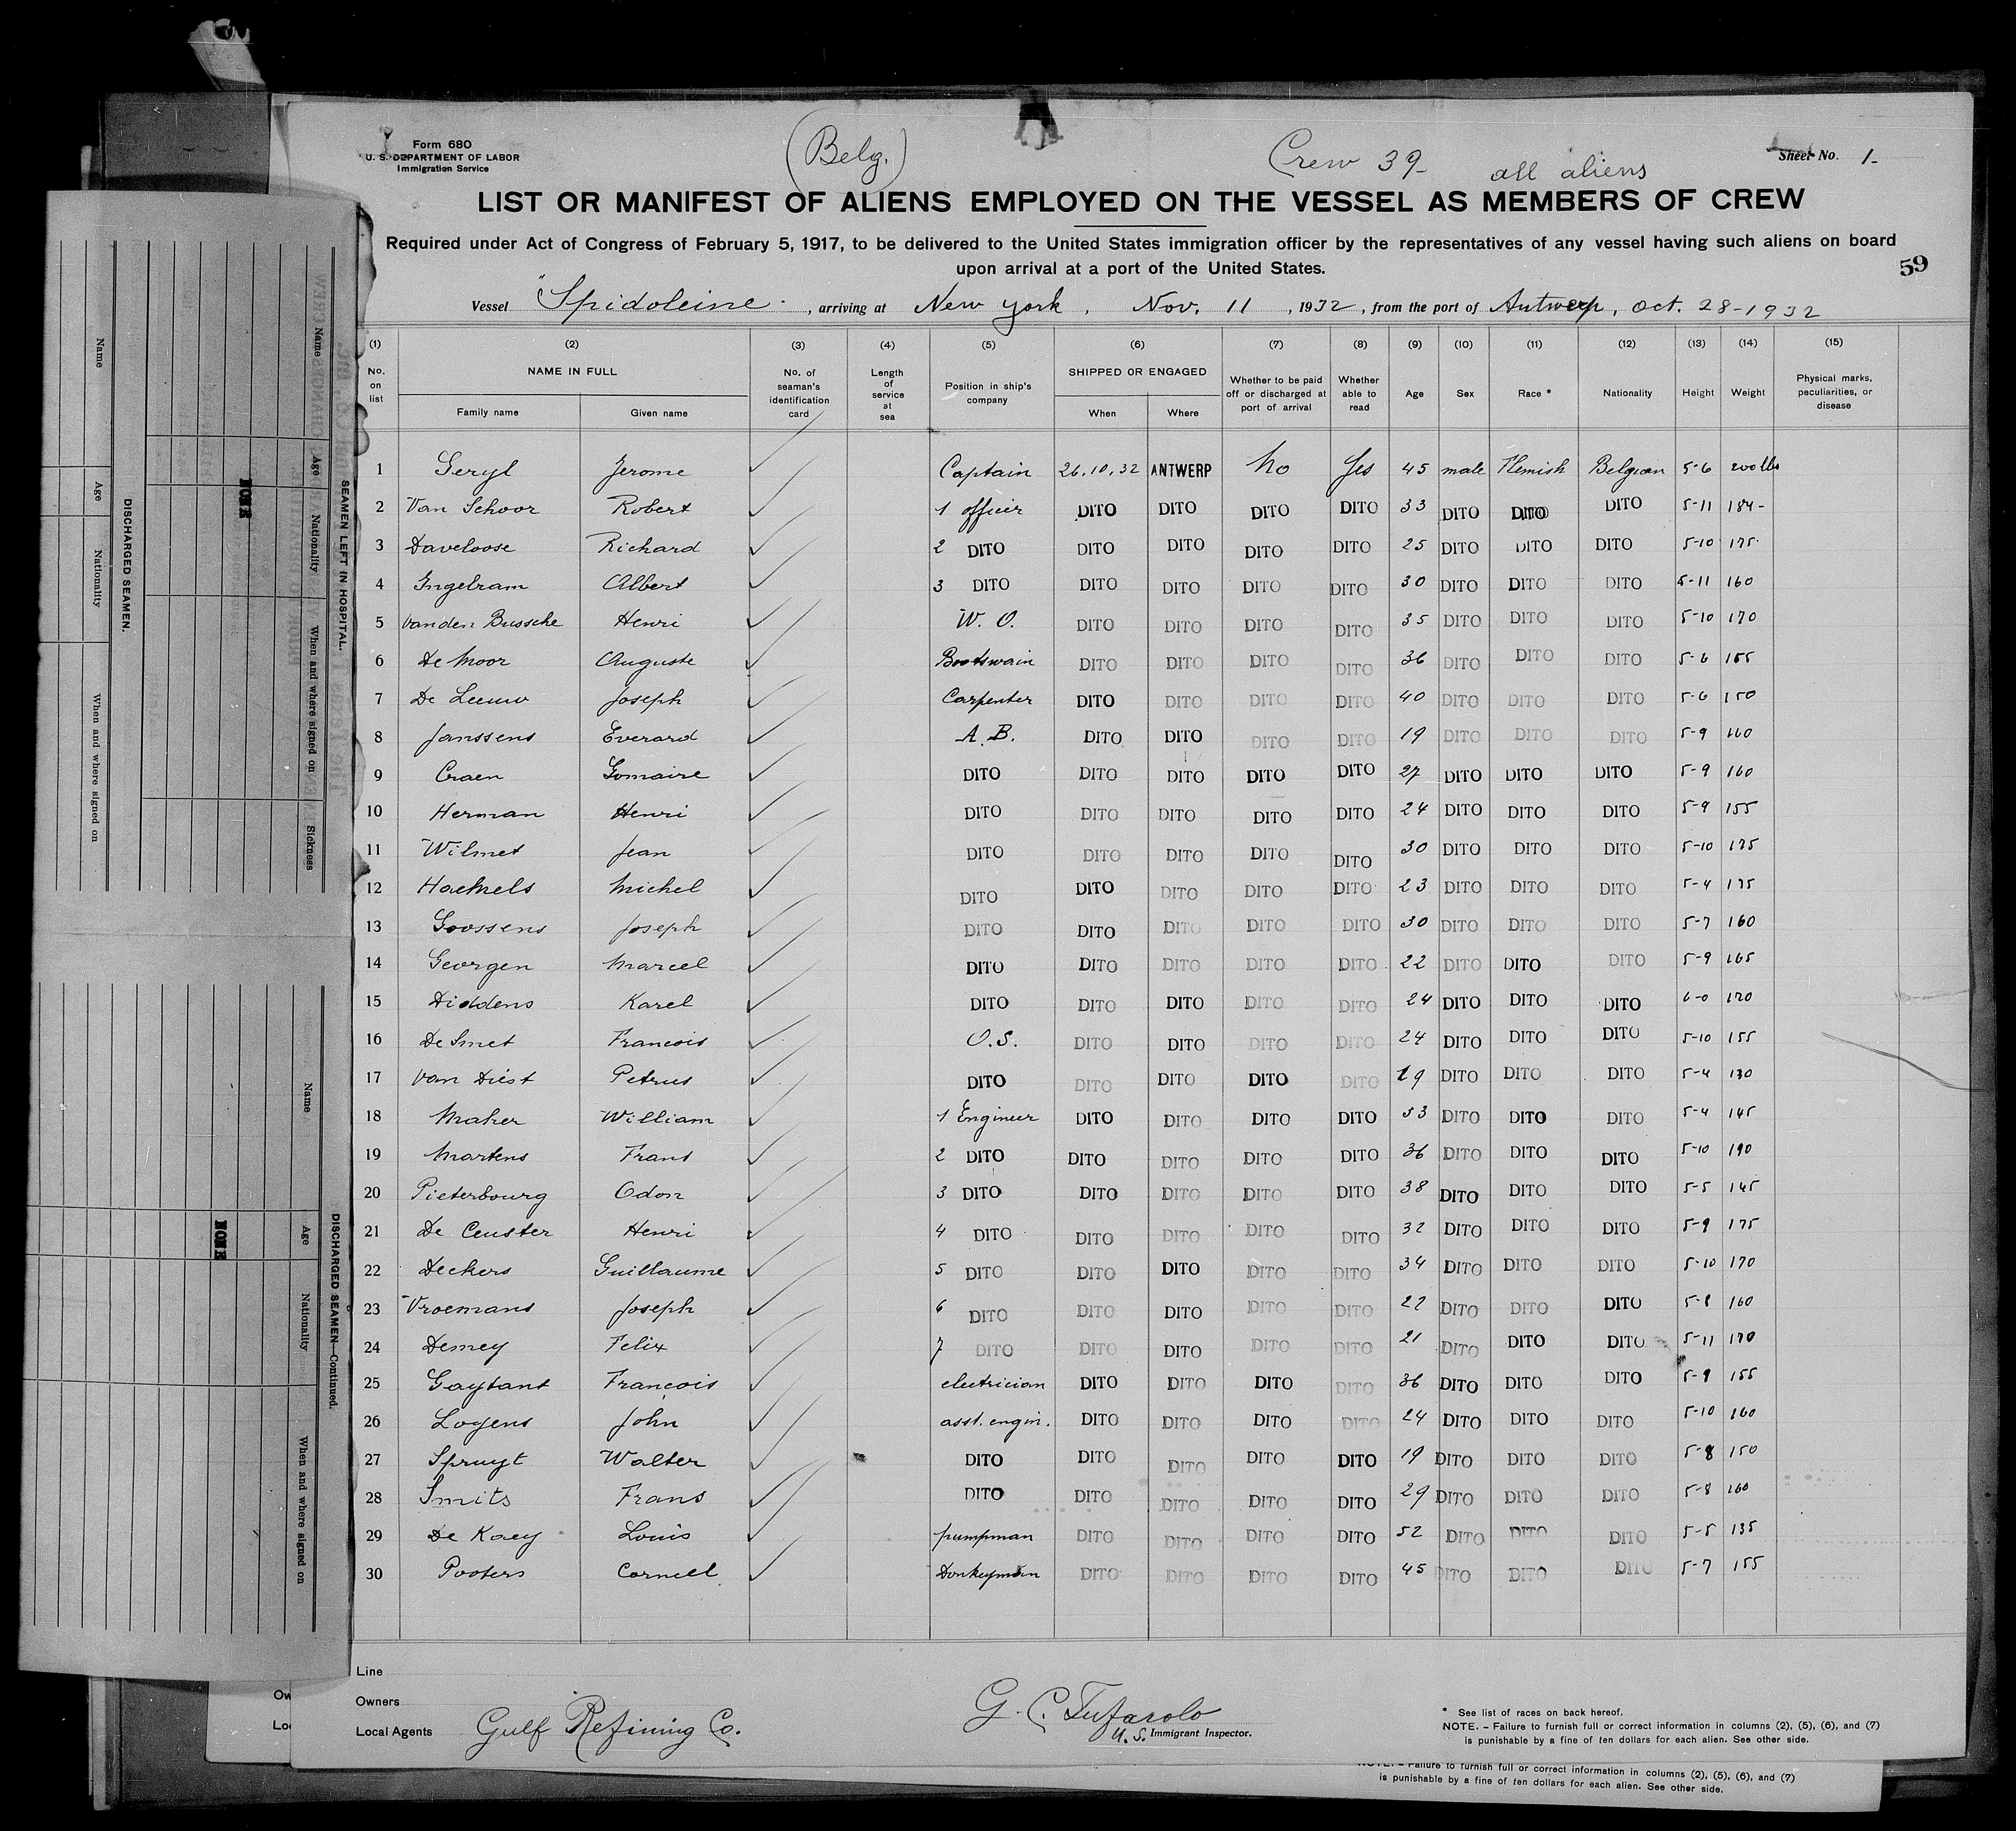 Form 680
U. S. DEPARTMENT OF LABOR
Immigration Service
(Belg.)
Crew 39 - all aliens
Sheet No. 1-
LIST OR MANIFEST OF ALIENS EMPLOYED ON THE VESSEL AS MEMBERS OF CREW
Required under Act of Congress of February 5, 1917, to be delivered to the United States immigration officer by the representatives of any vessel having such aliens on board
upon arrival at a port of the United States.
59
Vessel "Spidoleine", arriving at New York, Nov. 11, 1932, from the port of Antwerp, Oct. 28-1932
(1) (2) (3) (4) (5) (6) (7) (8) (9) (10) (11) (12) (13) (14) (15)
No. on list NAME IN FULL Family name Given name No. of seaman's identification card Length of service at sea Position in ship's company SHIPPED OR ENGAGED When Where Whether to be paid off or discharged at port of arrival Whether able to read Age Sex Race * Nationality Height Weight Physical marks, peculiarities, or disease
1 Geryl Jerome Captain 26.10.32 ANTWERP No Yes 45 male Flemish Belgian 5-6 200 lbs
2 Van Schoor Robert 1 officer DITO DITO DITO DITO 33 DITO DITO DITO 5-11 184-
3 Daveloose Richard 2 DITO DITO DITO DITO DITO 25 DITO DITO DITO 5-10 175
4 Ingelram Albert 3 DITO DITO DITO DITO DITO 30 DITO DITO DITO 5-11 160
5 Vanden Bussche Henri W. O. DITO DITO DITO DITO 35 DITO DITO DITO 5-10 170
6 De Moor Auguste Bootswain DITO DITO DITO DITO 36 DITO DITO DITO 5-6 155
7 De Leeuw Joseph Carpenter DITO DITO DITO DITO 40 DITO DITO DITO 5-6 150
8 Janssens Everard A. B. DITO DITO DITO DITO 19 DITO DITO DITO 5-9 160
9 Craen Gomaire DITO DITO DITO DITO DITO 27 DITO DITO DITO 5-9 160
10 Herman Henri DITO DITO DITO DITO DITO 24 DITO DITO DITO 5-9 155
11 Wilmet Jean DITO DITO DITO DITO DITO 30 DITO DITO DITO 5-10 175
12 Michel DITO DITO DITO DITO DITO 23 DITO DITO DITO 5-4 135
13 Goossens Joseph DITO DITO DITO DITO DITO 30 DITO DITO DITO 5-7 160
14 Georgen Marcel DITO DITO DITO DITO DITO 22 DITO DITO DITO 5-9 165
15 Diddens Karel DITO DITO DITO DITO DITO 24 DITO DITO DITO 6-0 170
16 De Smet Francois O.S. DITO DITO DITO DITO 24 DITO DITO DITO 5-10 155
17 Van Diest Petrus DITO DITO DITO DITO DITO 19 DITO DITO DITO 5-4 130
18 Maher William 1 Engineer DITO DITO DITO DITO 53 DITO DITO DITO 5-4 145
19 Martens Frans 2 DITO DITO DITO DITO DITO 36 DITO DITO DITO 5-10 190
20 Pieterbourg Odon 3 DITO DITO DITO DITO DITO 38 DITO DITO DITO 5-5 145
21 De Ceuster Henri 4 DITO DITO DITO DITO DITO 32 DITO DITO DITO 5-9 175
22 Deckers Guillaume 5 DITO DITO DITO DITO DITO 34 DITO DITO DITO 5-10 170
23 Vroemans Joseph 6 DITO DITO DITO DITO DITO 22 DITO DITO DITO 5-8 160
24 Demey Felix 7 DITO DITO DITO DITO DITO 21 DITO DITO DITO 5-11 170
25 Gaytant François electrician DITO DITO DITO DITO 36 DITO DITO DITO 5-9 155
26 Loyens John asst. engin. DITO DITO DITO DITO 24 DITO DITO DITO 5-10 160
27 Spruyt Walter DITO DITO DITO DITO DITO 19 DITO DITO DITO 5-8 150
28 Smits Frans DITO DITO DITO DITO DITO 29 DITO DITO DITO 5-8 160
29 De Kaey Louis pumpman DITO DITO DITO DITO 52 DITO DITO DITO 5-5 135
30 Pooters Corneel Donkeyman DITO DITO DITO DITO 45 DITO DITO DITO 5-7 155
Line
Owners
Local Agents Gulf Refining Co.
G. C. Tufarolo
U.S. Immigrant Inspector.
* See list of races on back hereof.
NOTE. - Failure to furnish full or correct information in columns (2), (5), (6), and (7)
is punishable by a fine of ten dollars for each alien. See other side.
NOTE. - Failure to furnish full or correct information in columns (2), (5), (6), and (7)
is punishable by a fine of ten dollars for each alien. See other side.
SEAMEN LEFT IN HOSPITAL.
Name Age Nationality When and where signed on Sickness
NONE
DISCHARGED SEAMEN.
Name Age Nationality When and where signed on
DISCHARGED SEAMEN—Continued.
Name Age Nationality When and where signed on
NONE
Ow
Lo